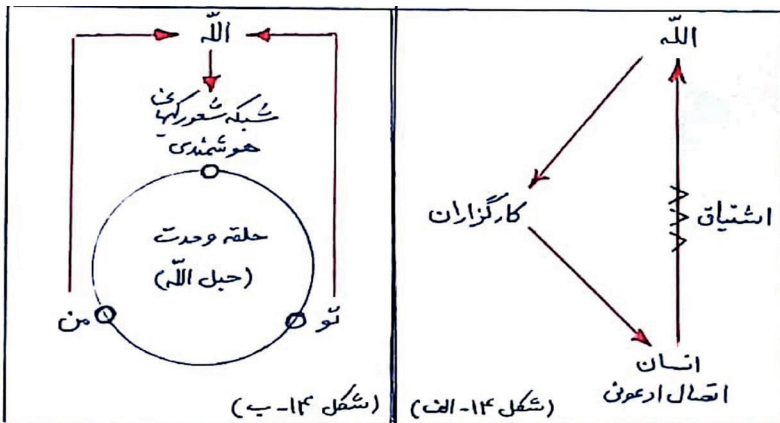 الله
اشتیاق
کارگزاران
انسان
اتصال ادعونی
(شکل ۱۴- الف)
الله
شبکه شعور کیهانی
هوشمندی
حلقه وحدت
(حبل الله)
تو
من
(شکل ۱۴- ب)